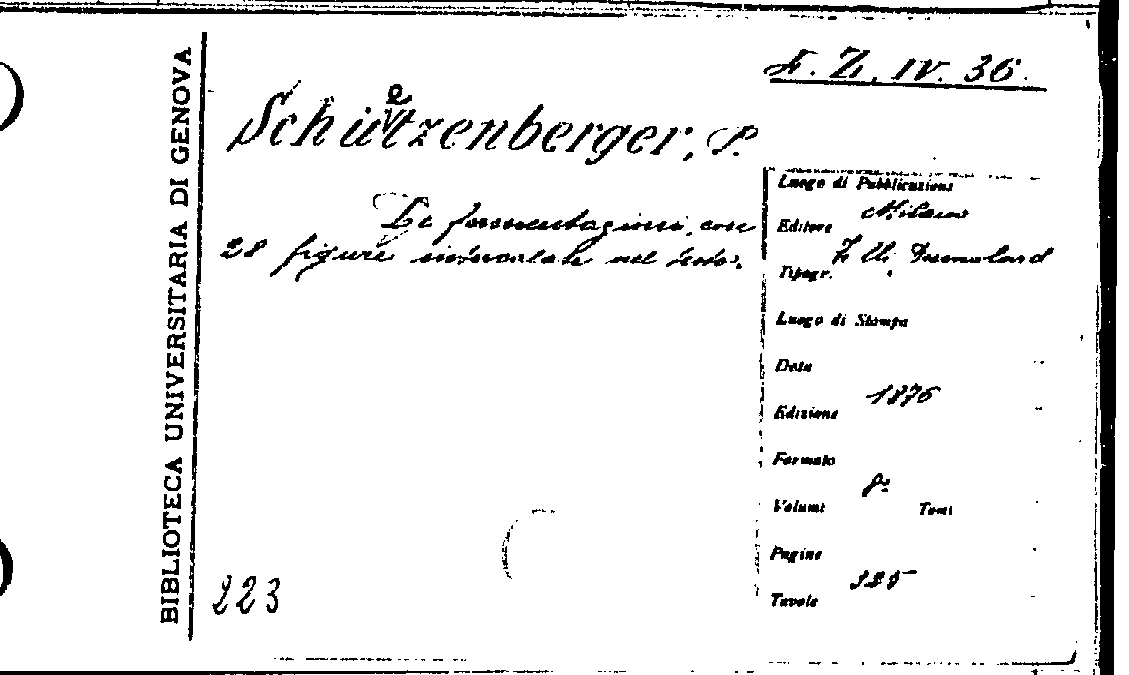 F. Z. IV. 36.
Schuetzenberger, P.
Le fermentazioni, con
28 figure intercalate nel testo.
BIBLIOTECA UNIVERSITARIA DI GENOVA
Luogo di Pubblicazione
Milano
Editore
F.lli Dumolard
Tipogr.
Luogo di Stampa
Data
1876
Edizione
Formato
8º
Volumi Tomi
Pagine
Tavole
223